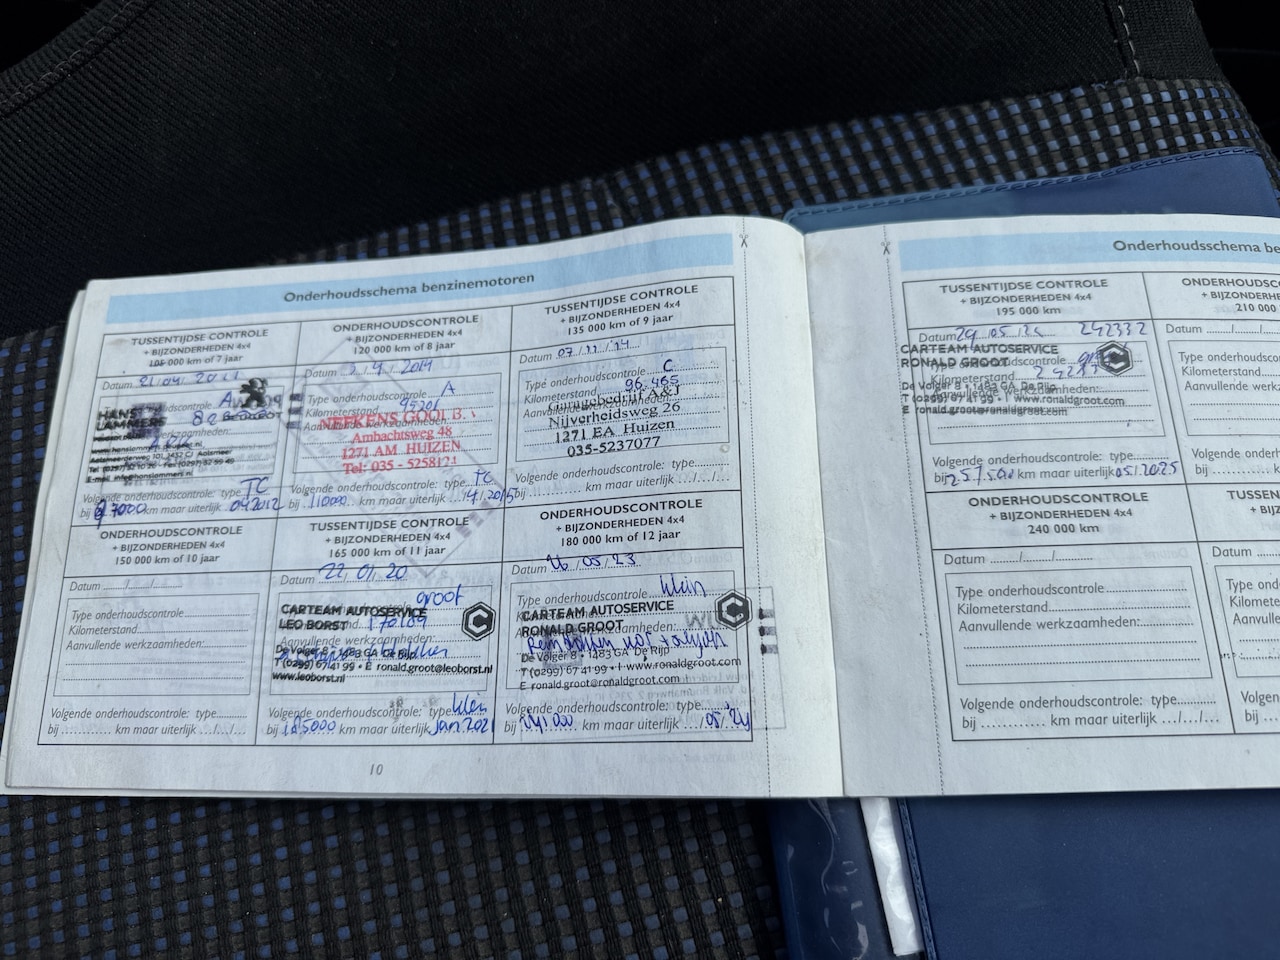 Onderhoudsschema benzinemotoren
TUSSENTIJDSE CONTROLE
+ BIJZONDERHEDEN 4x4
105 000 km of 7 jaar
Datum 21/04/2011
A
HANS
LAMMERS
PEUGEOT
Aalsmeer
Volgende onderhoudscontrole: type TC
bij 97000 km maar uiterlijk 04/2012
ONDERHOUDSCONTROLE
+ BIJZONDERHEDEN 4x4
120 000 km of 8 jaar
Datum /9/2014
Type onderhoudscontrole A
Kilometerstand
NEFKENS GOOI B.V.
Ambachtsweg 48
1271 AM HUIZEN
Tel: 035 - 5258121
Volgende onderhoudscontrole: type TC
bij 110000 km maar uiterlijk /4/2015
TUSSENTIJDSE CONTROLE
+ BIJZONDERHEDEN 4x4
135 000 km of 9 jaar
Datum 07/11/'14
Type onderhoudscontrole C
Kilometerstand 96.465
A&J
Nijverheidsweg 26
1271 EA Huizen
035-5237077
Volgende onderhoudscontrole: type
bij km maar uiterlijk .../.../...
ONDERHOUDSCONTROLE
+ BIJZONDERHEDEN 4x4
150 000 km of 10 jaar
Datum
Type onderhoudscontrole
Kilometerstand
Aanvullende werkzaamheden:
Volgende onderhoudscontrole: type
bij km maar uiterlijk .../.../...
TUSSENTIJDSE CONTROLE
+ BIJZONDERHEDEN 4x4
165 000 km of 11 jaar
Datum 22/01/20
groot
CARTEAM AUTOSERVICE
LEO BORST
Aanvullende werkzaamheden:
De Volger 8 • 1483 GA De Rijp
T (0299) 67 41 99 • E ronald.groot@leoborst.nl
www.leoborst.nl
Volgende onderhoudscontrole: type klein
bij 185000 km maar uiterlijk jan.2021
ONDERHOUDSCONTROLE
+ BIJZONDERHEDEN 4x4
180 000 km of 12 jaar
Datum 26/05/23
Type onderhoudscontrole klein
CARTEAM AUTOSERVICE
RONALD GROOT
De Volger 8 • 1483 GA De Rijp
T (0299) 67 41 99 • I www.ronaldgroot.com
E ronald.groot@ronaldgroot.com
Volgende onderhoudscontrole: type
bij km maar uiterlijk 05/'24
10
Onderhoudsschema be
TUSSENTIJDSE CONTROLE
+ BIJZONDERHEDEN 4x4
195 000 km
Datum 29/05/24 242332
CARTEAM AUTOSERVICE
RONALD GROOT
Kilometerstand
De Volger 8 • 1483 GA De Rijp
T (0299) 67 41 99 • I www.ronaldgroot.com
E ronald.groot@ronaldgroot.com
Volgende onderhoudscontrole: type
bij 257.500 km maar uiterlijk 05/2025
ONDERHOUDSC
+ BIJZONDERH
210 000
Datum
Type onderhouds
Kilometerstand
Aanvullende werk
Volgende onderho
bij km
ONDERHOUDSCONTROLE
+ BIJZONDERHEDEN 4x4
240 000 km
Datum
Type onderhoudscontrole
Kilometerstand
Aanvullende werkzaamheden:
Volgende onderhoudscontrole: type
bij km maar uiterlijk .../.../...
TUSSEN
+ BIJZ
Datum
Type onde
Kilometer
Aanvullen
Volgend
bij